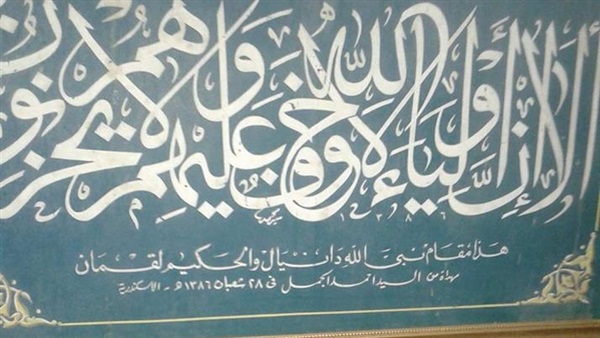 ألا إن أولياء الله لا خوف عليهم ولا هم يحزنون
١٣٨٦
هذا مقام نبي الله دانيال والحكيم لقمان
مهداة من السيد احمد الجمل في ٢٨ شعبان ١٣٨٦ هـ - الاسكندرية